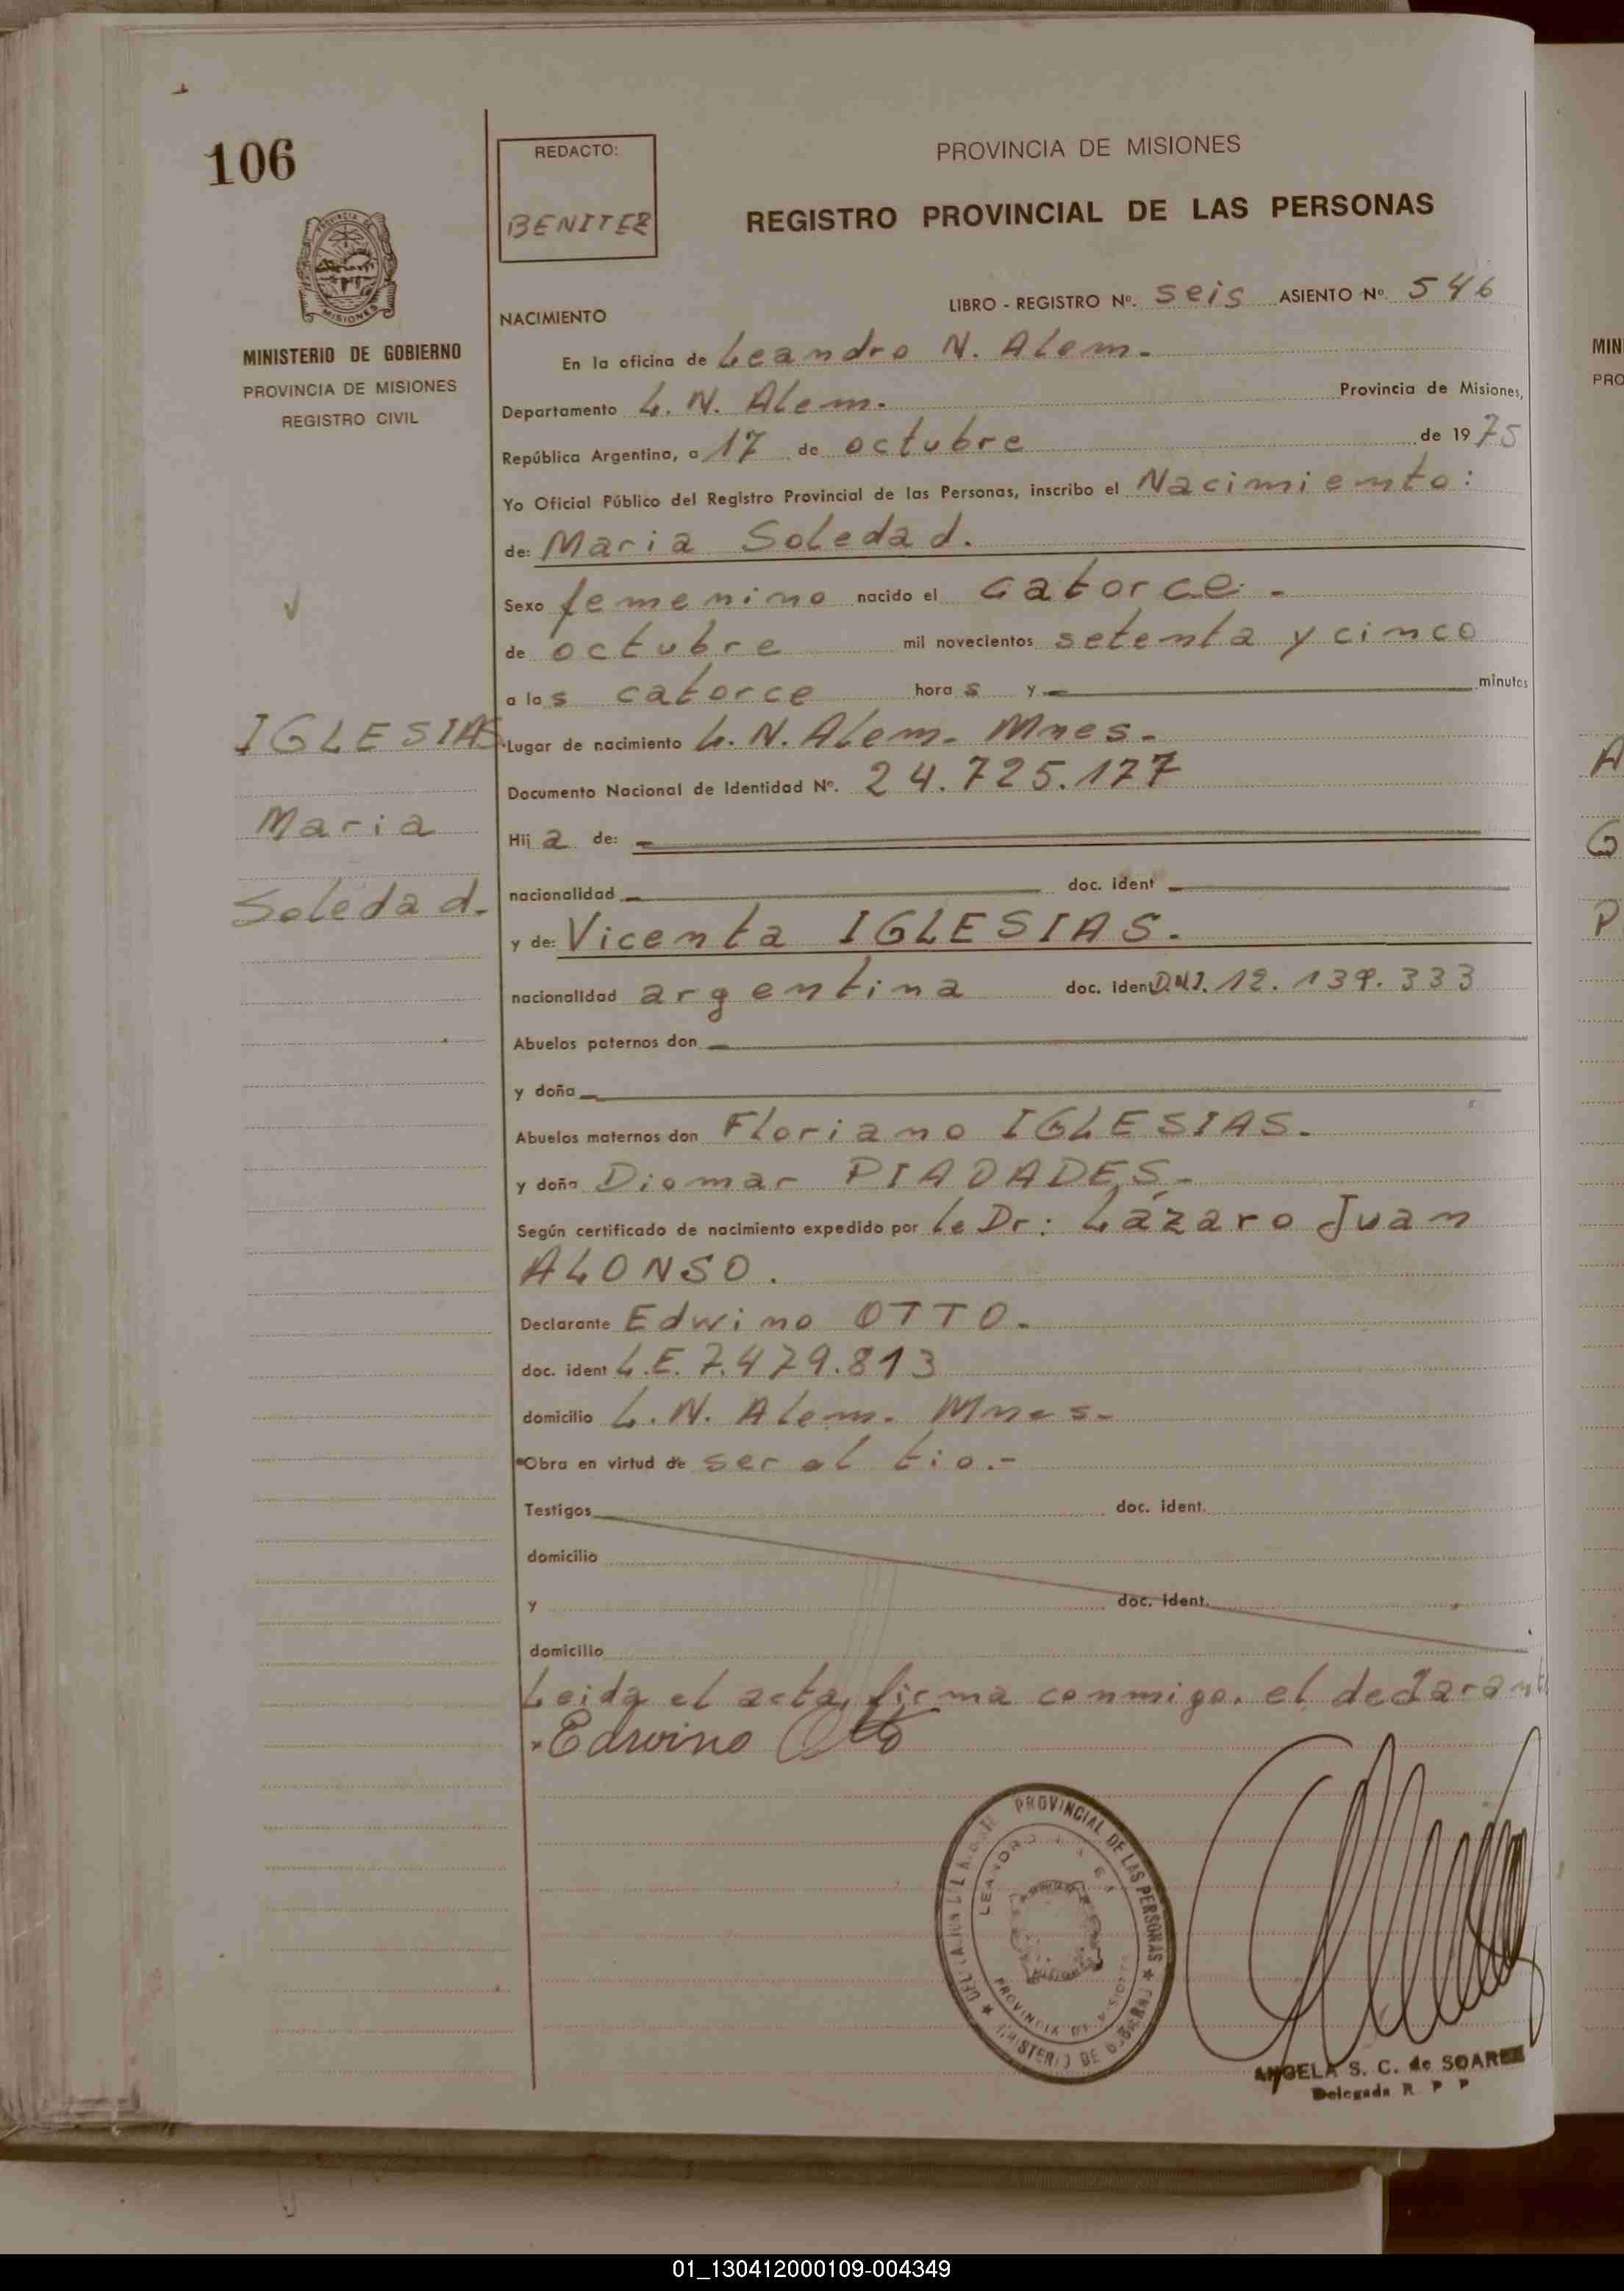 106
REDACTO:
BENITEZ
PROVINCIA DE MISIONES
REGISTRO PROVINCIAL DE LAS PERSONAS
PROVINCIA DE MISIONES
MINISTERIO DE GOBIERNO
PROVINCIA DE MISIONES
REGISTRO CIVIL
LIBRO - REGISTRO Nº. seis ASIENTO Nº. 546
NACIMIENTO
En la oficina de Leandro N. Alem.-
Departamento L. N. Alem.- Provincia de Misiones,
República Argentina, a 17 de octubre de 1975
Yo Oficial Público del Registro Provincial de las Personas, inscribo el Nacimiento:
de: Maria Soledad.
Sexo femenino nacido el catorce.-
de octubre mil novecientos setenta y cinco
a las catorce horas y minutos
IGLESIAS
Maria
Soledad.
Lugar de nacimiento L. N. Alem.- Mnes.-
Documento Nacional de Identidad Nº. 24.725.177
Hija de:
nacionalidad doc. ident
y de: Vicenta IGLESIAS.-
nacionalidad argentina doc. ident D.N.I. 12.139.333
Abuelos paternos don
y doña
Abuelos maternos don Floriano IGLESIAS.-
y doña Diomar PIADADES.-
Según certificado de nacimiento expedido por Le Dr: Lázaro Juan
ALONSO.
Declarante Edwino OTTO.-
doc. ident L.E. 7.479.813
domicilio L. N. Alem.- Mnes.-
Obra en virtud de ser el tio.-
Testigos doc. ident.
domicilio
y doc. ident.
domicilio
Leida el acta, firma conmigo, el declarante
Edwino Otto
PROVINCIAL DE LAS PERSONAS
PROVINCIA DE MISIONES
MINISTERIO DE GOBIERNO
ANGELA S. C. de SOAREZ
Delegada R P P
MIN
PRO
A
G
P
01_130412000109-004349